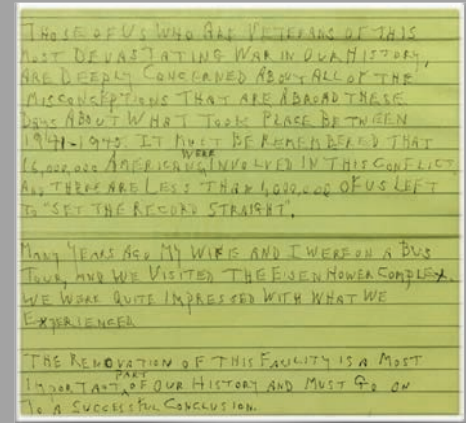 THOSE OF US WHO ARE VETERANS OF THIS
MOST DEVASTATING WAR IN OUR HISTORY,
ARE DEEPLY CONCERNED ABOUT ALL OF THE
MISCONCEPTIONS THAT ARE ABROAD THESE
DAYS ABOUT WHAT TOOK PLACE BETWEEN
1941-1945. IT MUST BE REMEMBERED THAT
16,000,000 AMERICANS WERE INVOLVED IN THIS CONFLICT
AND THERE ARE LESS THAN 1,000,000 OF US LEFT
TO "SET THE RECORD STRAIGHT".
MANY YEARS AGO MY WIFE AND I WERE ON A BUS
TOUR, AND WE VISITED THE EISENHOWER COMPLEX.
WE WERE QUITE IMPRESSED WITH WHAT WE
EXPERIENCED
THE RENOVATION OF THIS FACILITY IS A MOST
IMPORTANT PART OF OUR HISTORY AND MUST GO ON
TO A SUCCESSFUL CONCLUSION.